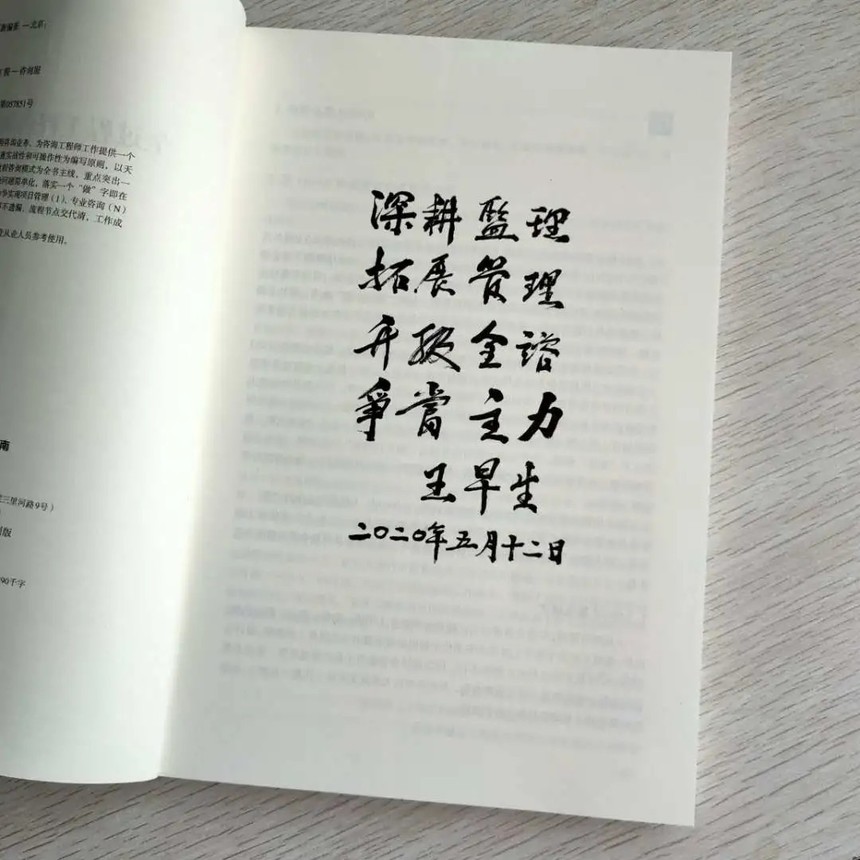 第057851号
为咨询工程师工作提供一个
重实战性和可操作性为编写原则，以天
咨询模式为全书主线，重点突出一
问题简单化，落实一个“做”字即在
实现项目管理（1）、专业咨询（N）
不遗漏、流程节点交代清，工作成
从业人员参考使用。
南
三里河路9号）
90千字
深耕監理
拓展管理
升级全谘
爭當主力
王早生
二〇二〇年五月十二日